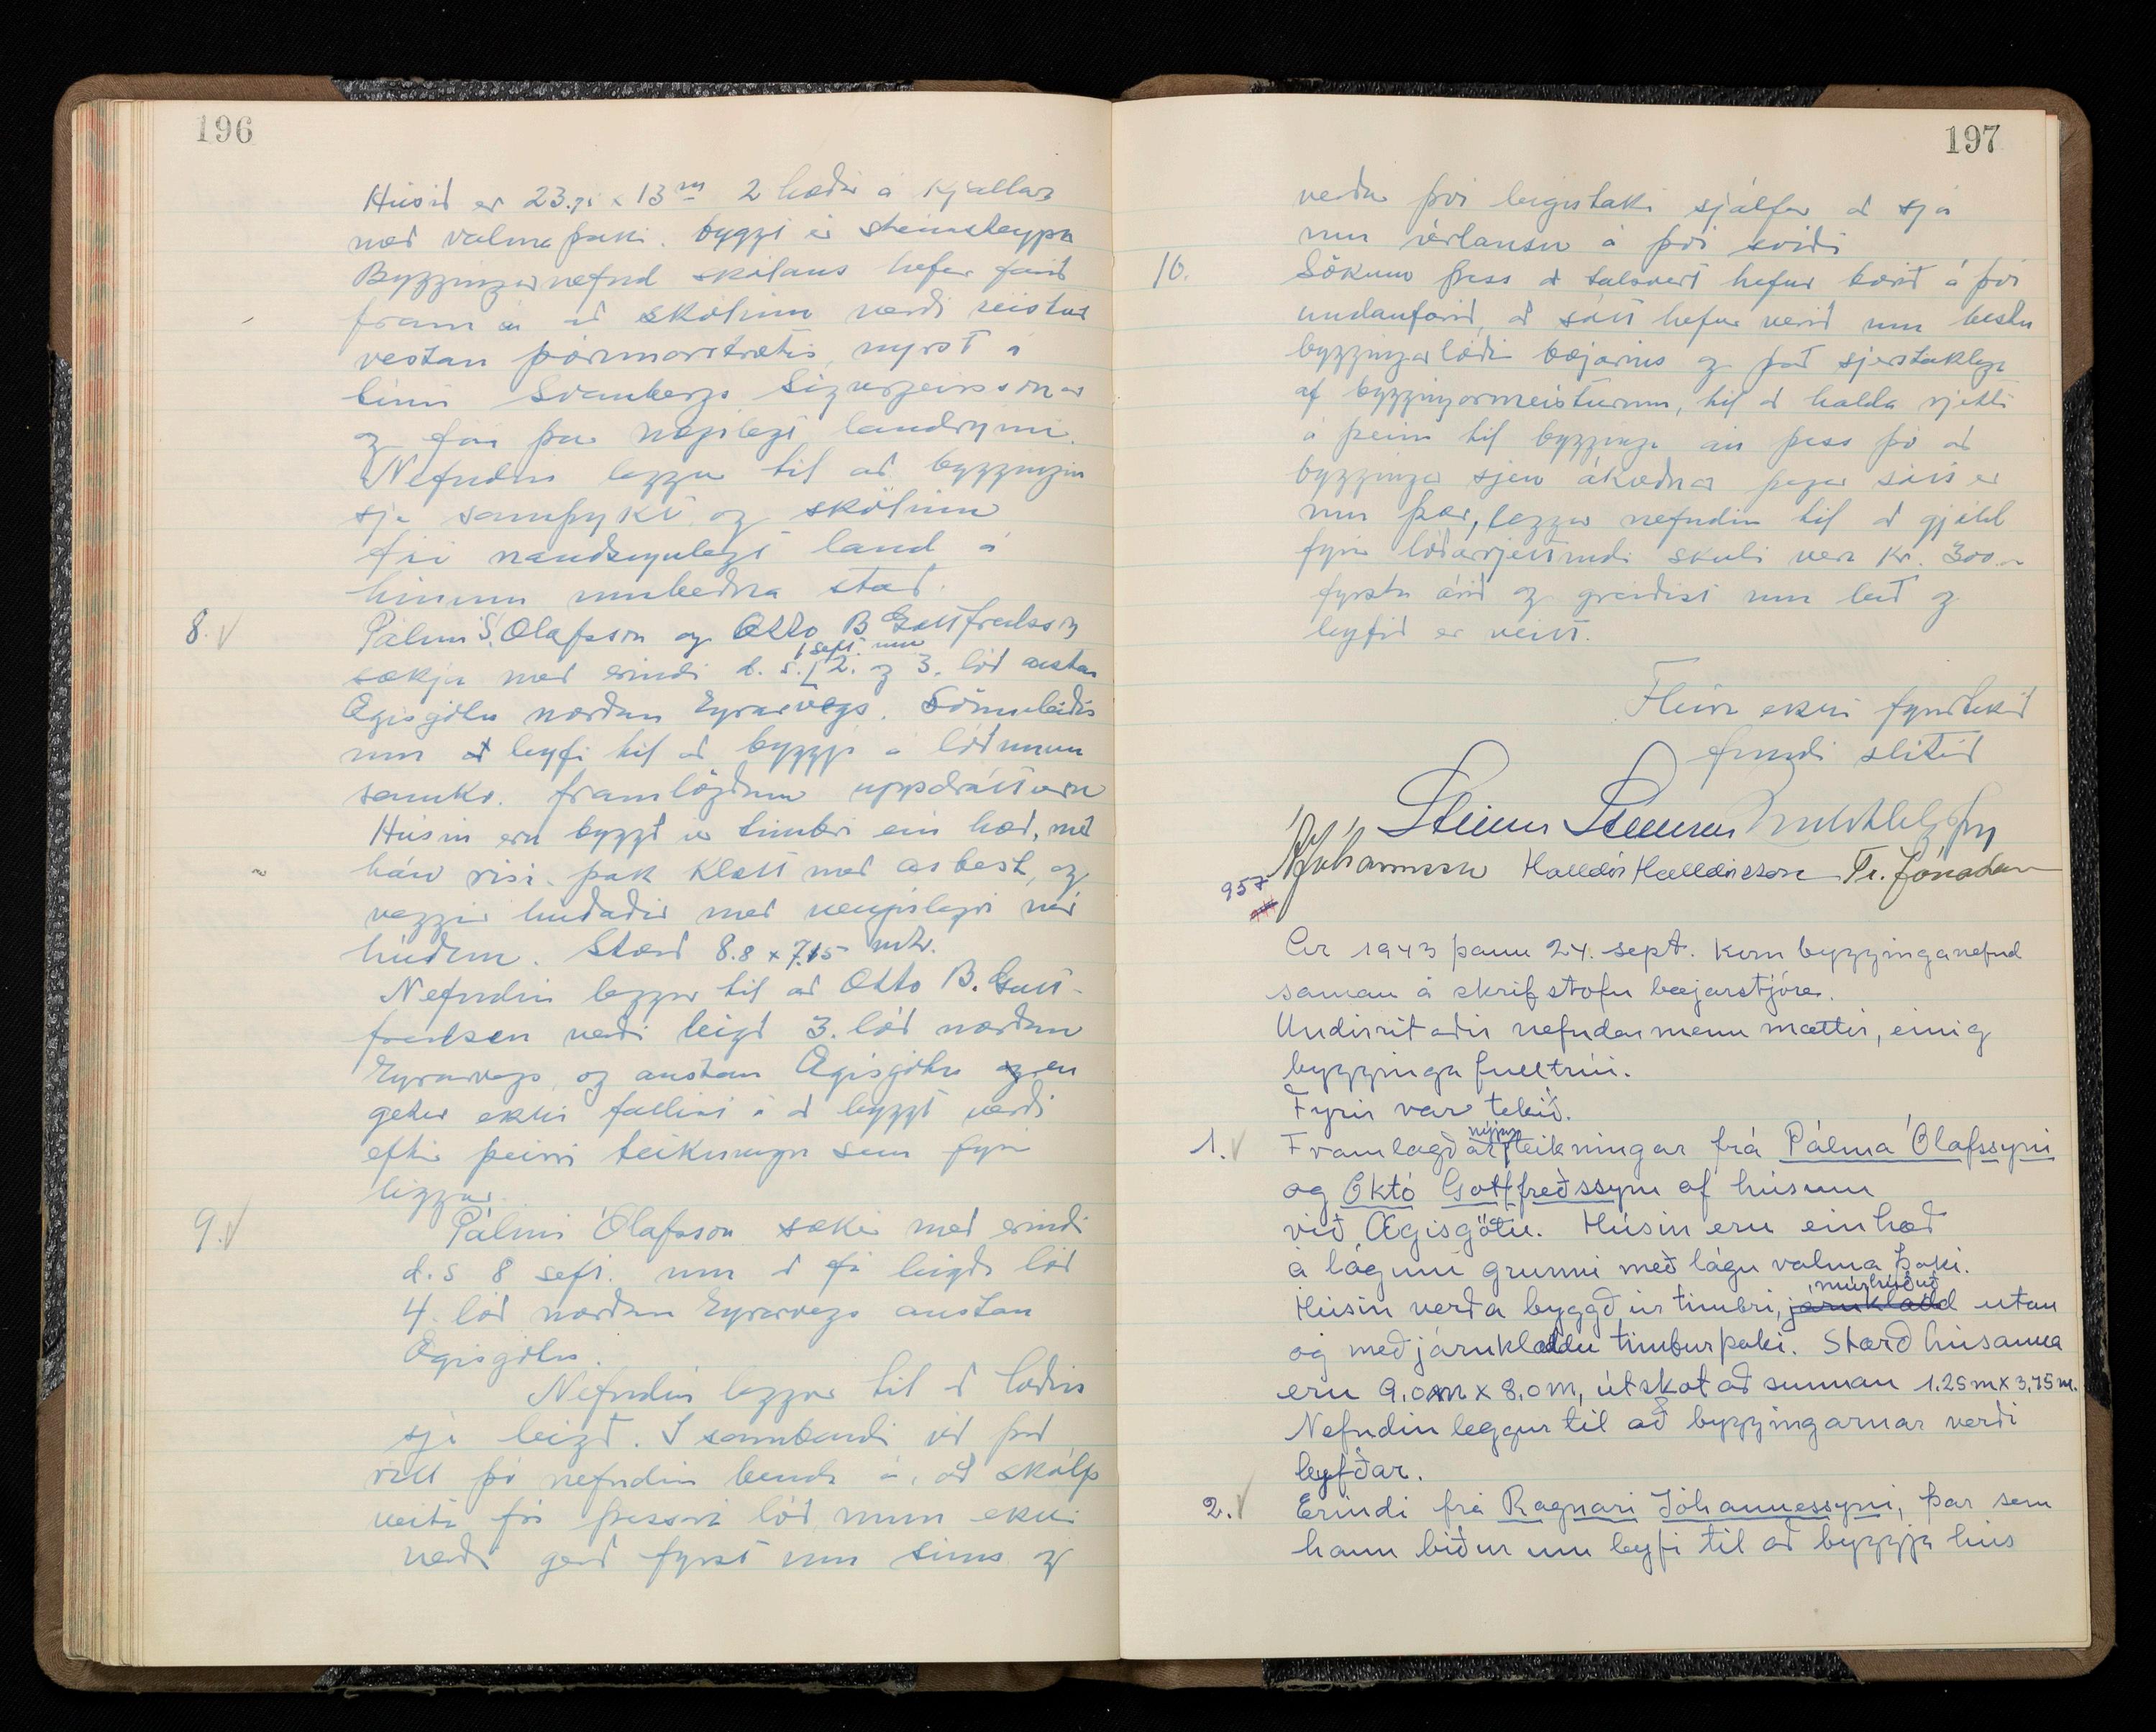 196
Húsið er 23.75 x 13 m 2 hæðir á kjallara
með valmaþaki. byggt úr steinsteypu
Byggingarnefnd skólans hefur farið
fram á að skólinn verði reistur
vestan Þórunnarstrætis, nyrst á
túni Svanbergs Sigurgeirssonar
og fái þar nægilegt landrými.
Nefndin leggur til að byggingin
sje samþykt og skólinn
fái nauðsynlegt land á
hinum umbeðna stað.
8. Pálmi S. Olafsson og Otto B Gottfredsson
sækja með erindi d. s. 1 sept. um 2. og 3. lóð austan
Ægisgötu norðan Eyrarvegs. Sömuleiðis
um að leyfi til að byggja á lóðunum
samkv. framlögðum uppdráttum
Húsin eru byggð úr timbri ein hæð, með
háu risi. þak klætt með asbest, og
veggir húðaðir með venjulegri múr
húðun. Stærð 8.8 x 7.15 mtr.
Nefndin leggur til að Otto B. Gott-
fredsen verði leigð 3. lóð norðan
Eyrarvegs, og austan Ægisgötu og en
getur ekki fallist á að byggt verði
eftir þeirri teikningu sem fyrir
liggur.
9. Pálmi Ólafsson sækir með erindi
d. s 8 sept. um að fá leigða lóð
4. lóð norðan Eyrarvegs austan
Ægisgötu.
Nefndin leggur til að lóðin
sje leigð. I sambandi við það
vill þó nefndin benda á, að skólp
veita frá þessari lóð mun ekki
verða gerð fyrst um sinn og
197
verður því leigutaki sjálfur að sjá
um úrlausn á því sviði
10. Sökum þess að talsvert hefur borið á því
undanfarið, að sótt hefur verið um bestu
byggingarlóðir bæjarins og það sjerstaklega
af byggingarmeisturum, til að halda rjetti
á þeim til bygginga án þess þó að
byggingar sjeu ákveðnar þegar sótt er
um þær, leggur nefndin til að gjald
fyrir lóðarrjettindi skuli vera kr. 300.-
fyrsta árið og greiðist um leið og
leyfið er veitt.
Fleira ekki fyrirtekið
fundi slitið
Steinn Steinsen
Jóhannsson Halldór Halldórsson Tr. Jónatans
957
Ár 1943 þann 24. sept. kom bygginganefnd
saman á skrifstofu bæjarstjóra.
Undirritaðir nefndarmenn mættir, einig
bygginga fulltrúi.
Fyrir var tekið.
1. Framlagðar nýjar teikningar frá Pálma Ólafssyni
og Októ Gottfreðssyni af húsum
við Ægisgötu. Húsin eru ein hæð
á lágum grunni með lágu valma þaki.
Húsin verða byggð úr timbri, járnklædd múrhúðuð utan
og með járnklæddu timburþaki. Stærð húsanna
eru 9.0m x 8.0m, útskot að sunnan 1.25m x 3.75m.
Nefndin leggur til að byggingarnar verði
leyfðar.
2. Erindi frá Ragnari Jóhannessyni, þar sem
hann biður um leyfi til að byggja hús